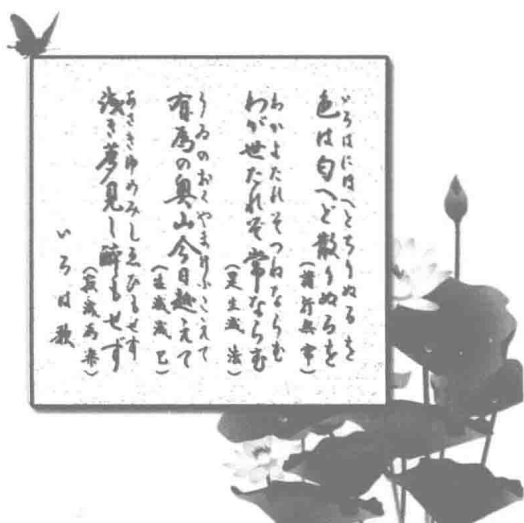 いろはにほへとちりぬるを
色は匂へど散りぬるを
(諸行無常)
わかよたれそつねならむ
わが世たれぞ常ならむ
(是生滅法)
うゐのおくやまけふこえて
有為の奥山今日越えて
(生滅滅已)
あさきゆめみしゑひもせす
浅き夢見し酔もせず
(寂滅為楽)
いろは歌